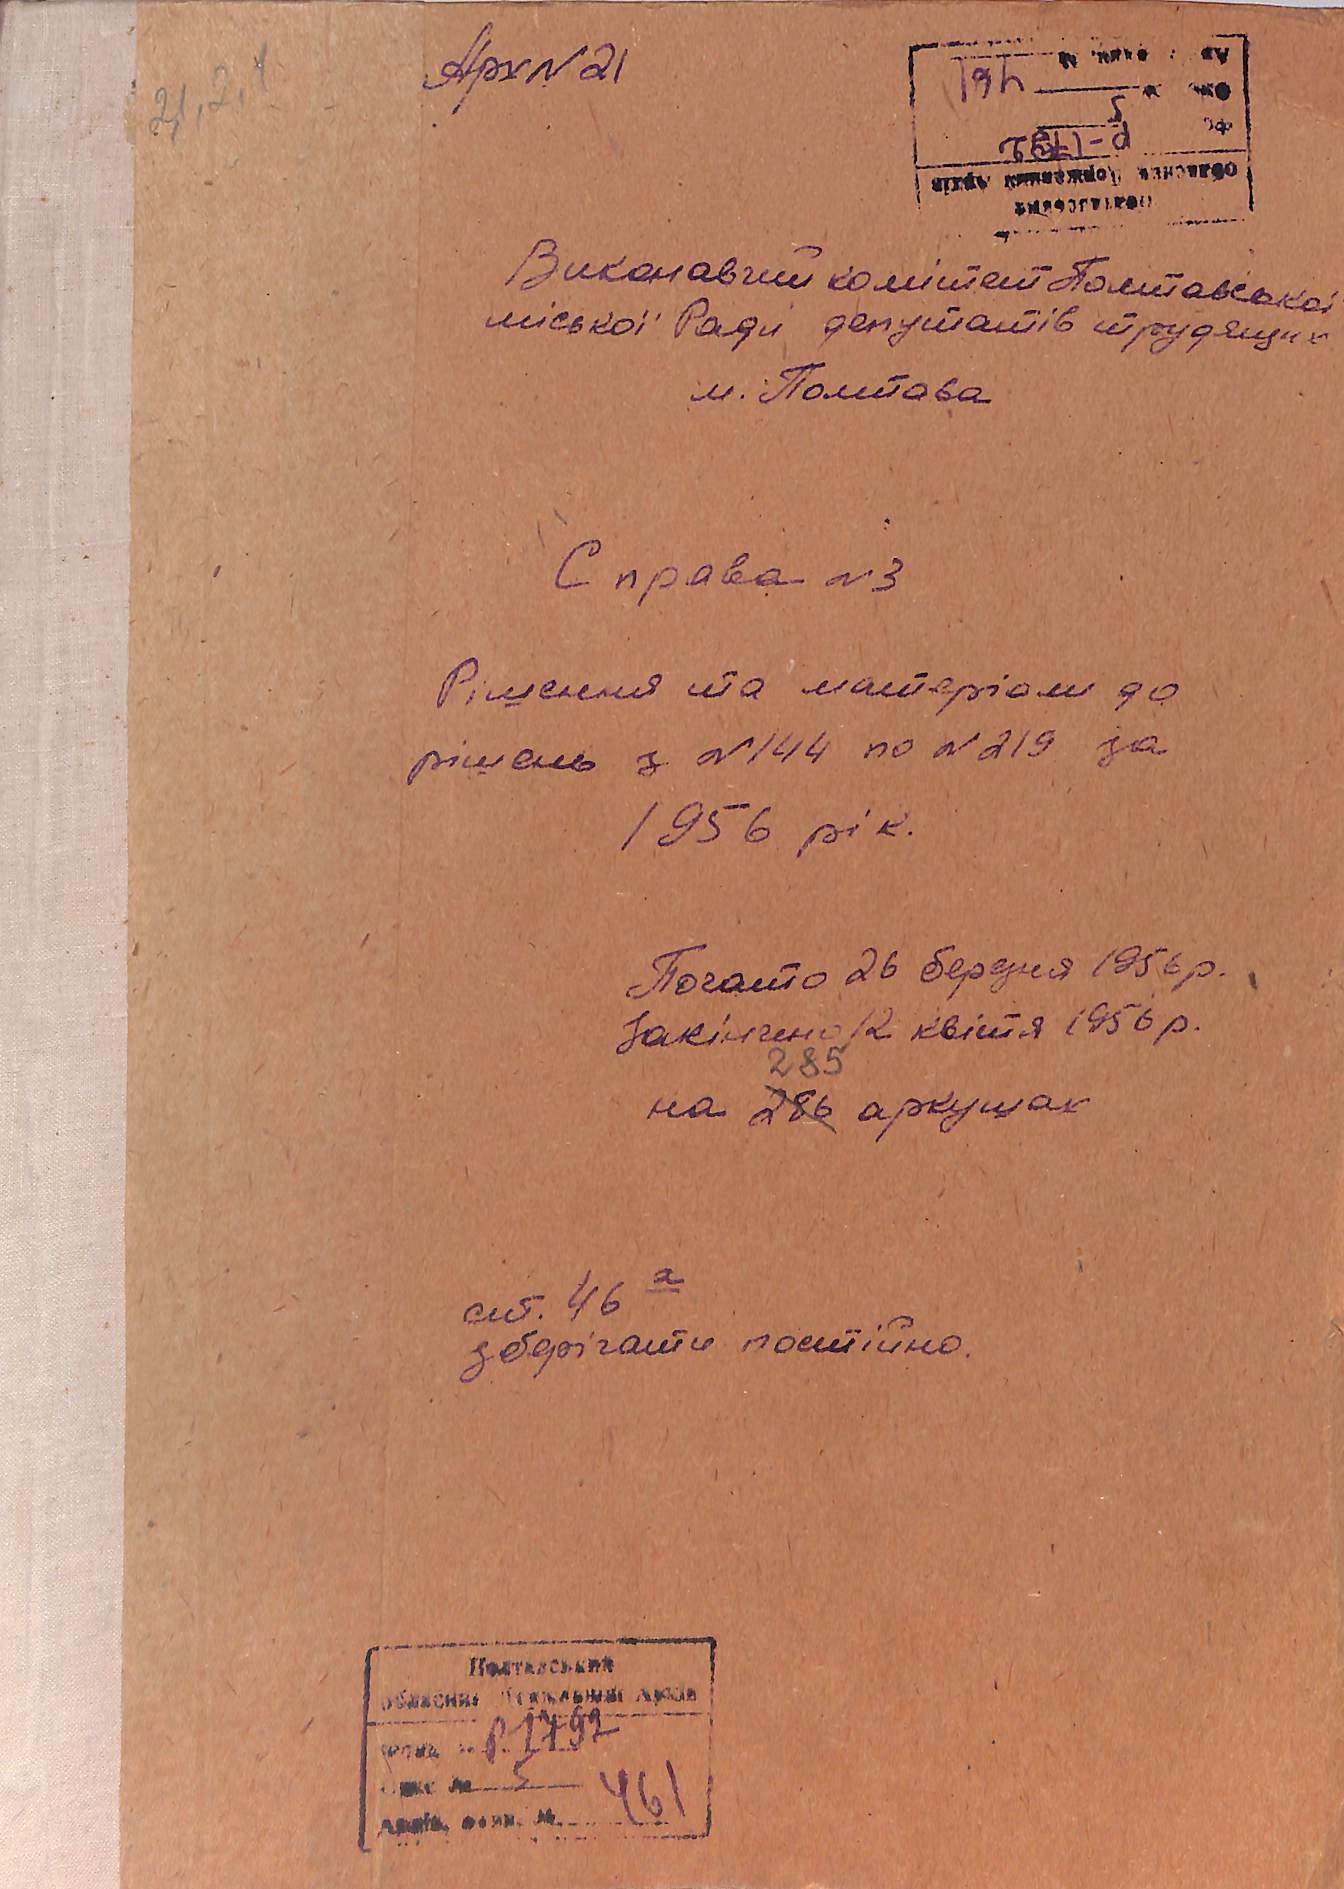 Арх N 21
21, 2, 1
Полтавський
Обласний Державний Архів
Р-1792
5
461
Виконавчий комітет Полтавської
міської Ради депутатів трудящих
м. Полтава
Справа N 3
Рішення та матеріали до
рішень з N 144 по N 219 за
1956 рік.
Почато 26 березня 1956 р.
Закінчено 12 квітня 1956 р.
285
на 286 аркушах
ст. 46 а
зберігати постійно.
Полтавський
Обласний Державний Архів
Фонд № Р. 1792
Опис № 5
Архів. один. № 461